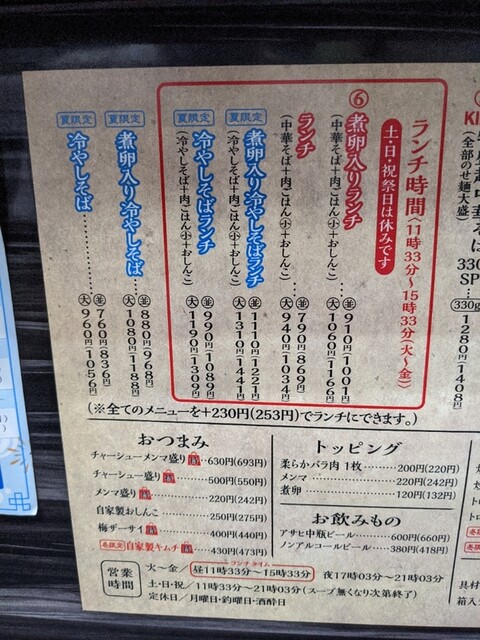 ランチ時間〈11時33分〜15時33分(火〜金)
土・日・祝祭日は休みです
⑥煮卵入りランチ
(中華そば+肉ごはん小+おしんこ)
並 910円(1001円)
大 1060円(1166円)
ランチ
(中華そば+肉ごはん小+おしんこ)
並 790円(869円)
大 940円(1034円)
夏限定
煮卵入り冷やしそばランチ
(冷やしそば+肉ごはん小+おしんこ)
並 1110円(1221円)
大 1310円(1441円)
夏限定
冷やしそばランチ
(冷やしそば+肉ごはん小+おしんこ)
並 990円(1089円)
大 1190円(1309円)
夏限定
煮卵入り冷やしそば
並 880円(968円)
大 1080円(1188円)
夏限定
冷やしそば
並 760円(836円)
大 960円(1056円)
(※全てのメニューを+230円(253円)でランチにできます。)
おつまみ
チャーシューメンマ盛り 630円(693円)
チャーシュー盛り 500円(550円)
メンマ盛り 220円(242円)
自家製おしんこ 250円(275円)
梅ザーサイ 400円(440円)
冬限定 自家製キムチ 430円(473円)
トッピング
柔らかバラ肉 1枚 200円(220円)
メンマ 220円(242円)
煮卵 120円(132円)
お飲みもの
アサヒ中瓶ビール 600円(660円)
ノンアルコールビール 380円(418円)
営業時間
ランチタイム
火〜金/昼11時33分〜15時33分 夜17時03分〜21時03分
土・日・祝/11時33分〜21時03分(スープ無くなり次第終了)
定休日/月曜日・釣曜日・酒酔日